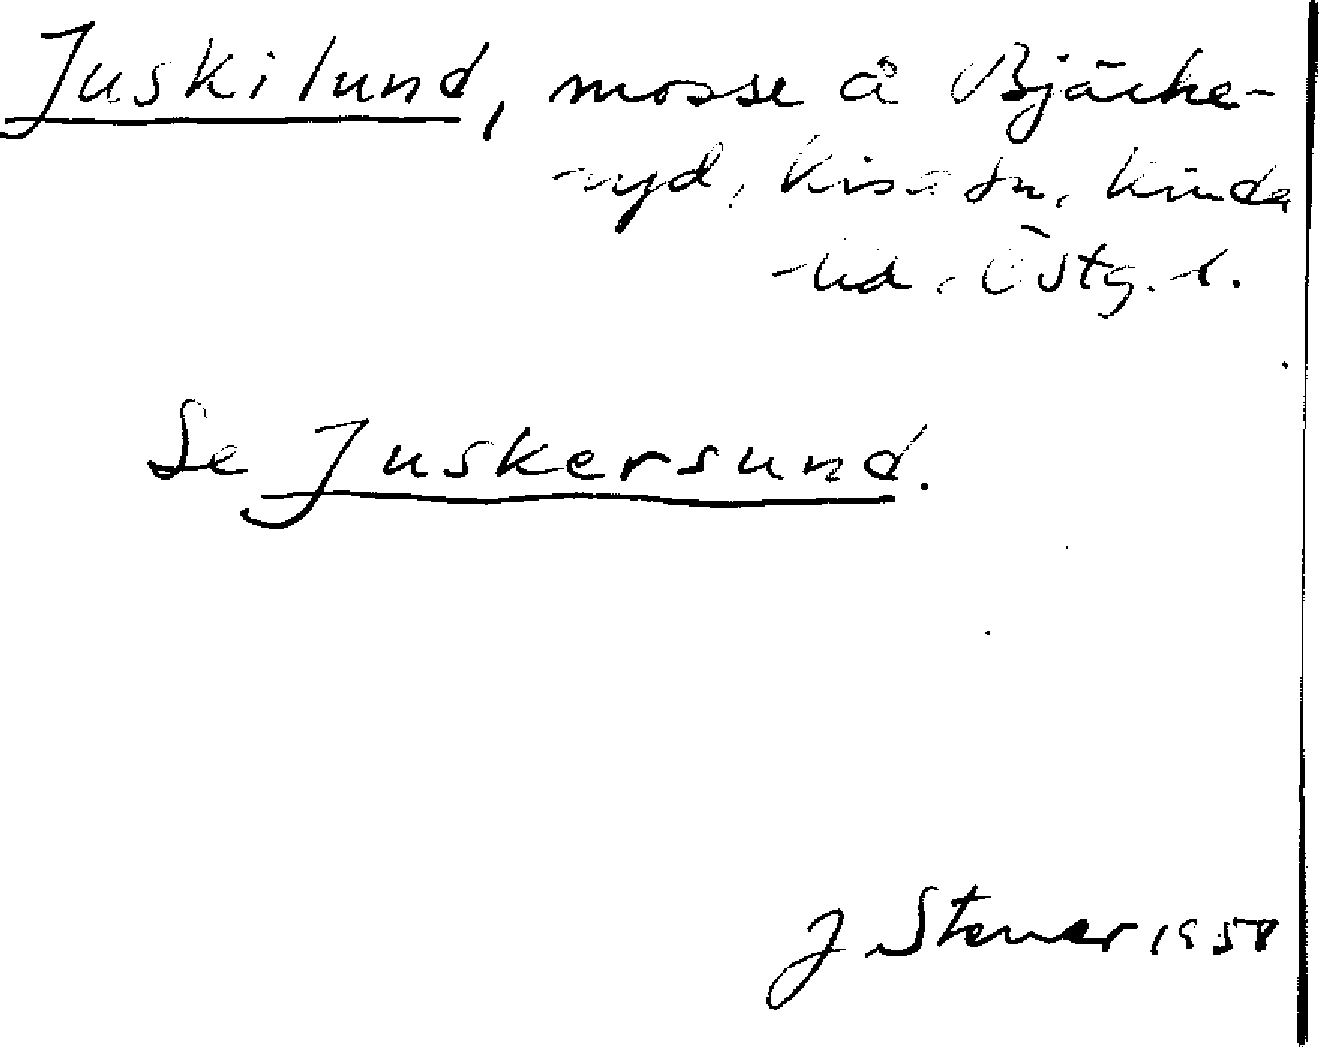 Juskilund, mosse å Bjärke-
ryd, Kisa sn, Kinda
hd. Östg. l.
Se Juskersund.
J Stener 1958